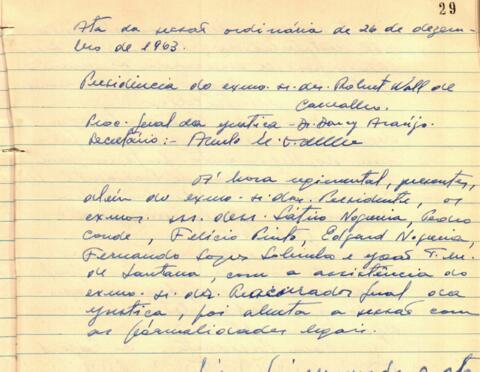 29
Ata da sessão ordinária de 26 de dezem-
bro de 1963.
Presidência do exmo. sr. des. Robert Wall de
Carvalho.
Proc. Geral da Justiça - Dr. Darcy Araújo.
Secretário:-
À hora regimental, presentes,
além do exmo. sr. des. Presidente, os
exmos. srs. dess. Sátiro Nogueira, Pedro
Conde, Felício Pinto, Edgard Nogueira,
Fernando Lopes Sobrinho e João T. M.
de Santana, com a assistência do
exmo. sr. dr. Procurador Geral da
Justiça, foi aberta a sessão com
as formalidades legais.